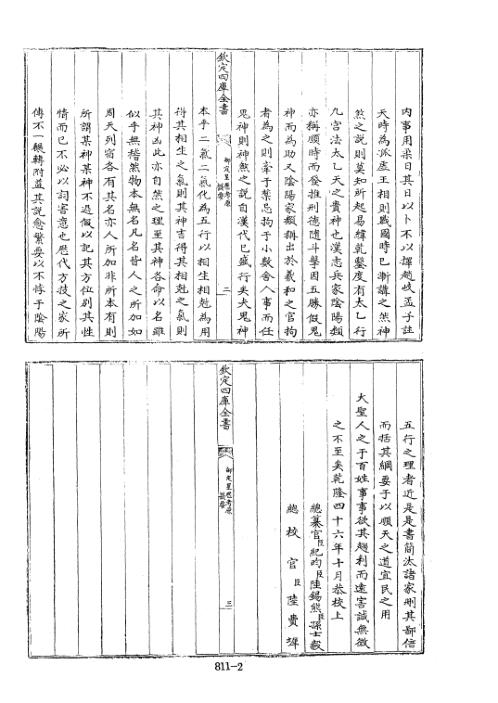 內事用柔日其日以卜不以擇趙岐孟子註
天時為孤虛王相則戰國時已漸講之然神
煞之說則莫知所起易緯乾鑿度有太乙行
九宮法太乙天之貴神也漢志兵家陰陽類
亦稱順時而發推刑德隨斗擊因五勝假鬼
神而為助又陰陽家類稱出於羲和之官拘
者為之則牽于禁忌拘于小數舍人事而任
鬼神則神煞之說自漢代已盛行矣夫鬼神
欽定四庫全書
御定星歷考原
提要
二
本乎二氣二氣化為五行以相生相剋為用
得其相生之氣則其神吉得其相剋之氣則
其神凶此亦自然之理至其神各命以名雖
似乎無稽然物本無名凡名皆人之所加如
周天列宿各有其名亦人所加非所本有則
所謂某神某神不過假以記其方位別其性
情而已不必以詞害意也歷代方技之家所
傳不一輾轉附益其說愈繁要以不悖于陰陽
五行之理者近是是書簡汰諸家刪其鄙倍
而括其綱要于以順天之道宜民之用
大聖人之于百姓事事欲其趨利而遠害誠無微
之不至矣乾隆四十六年十月恭校上
總纂官臣紀昀臣陸錫熊臣孫士毅
總校官臣陸費墀
欽定四庫全書
御定星歷考原
提要
三
811-2